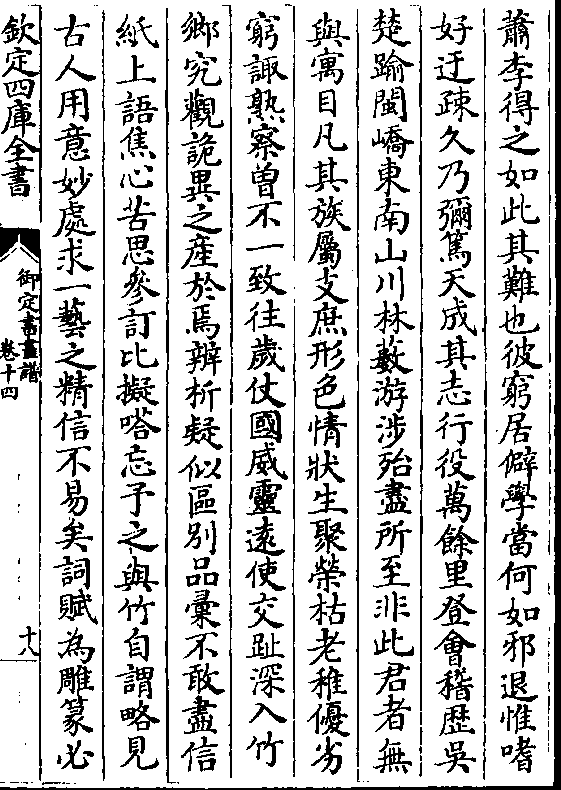 蕭李得之如此其難也彼窮居僻學當何如邪退惟嗜
好迂疎久乃彌篤天成其志行役萬餘里登會稽歴吳
楚踰閩嶠東南山川林藪游涉殆盡所至非此君者無
與寓目凡其族屬支庶形色情狀生聚榮枯老稚優劣
窮諏熟察曽不一致往歲仗國威靈遠使交趾深入竹
鄉究觀詭異之産於焉辨析疑似區别品彚不敢盡信
紙上語焦心苦思參訂比擬嗒忘予之與竹自謂略見
古人用意妙處求一藝之精信不易矣詞賦為雕篆必
欽定四庫全書
御定書畫譜
卷十四
十八